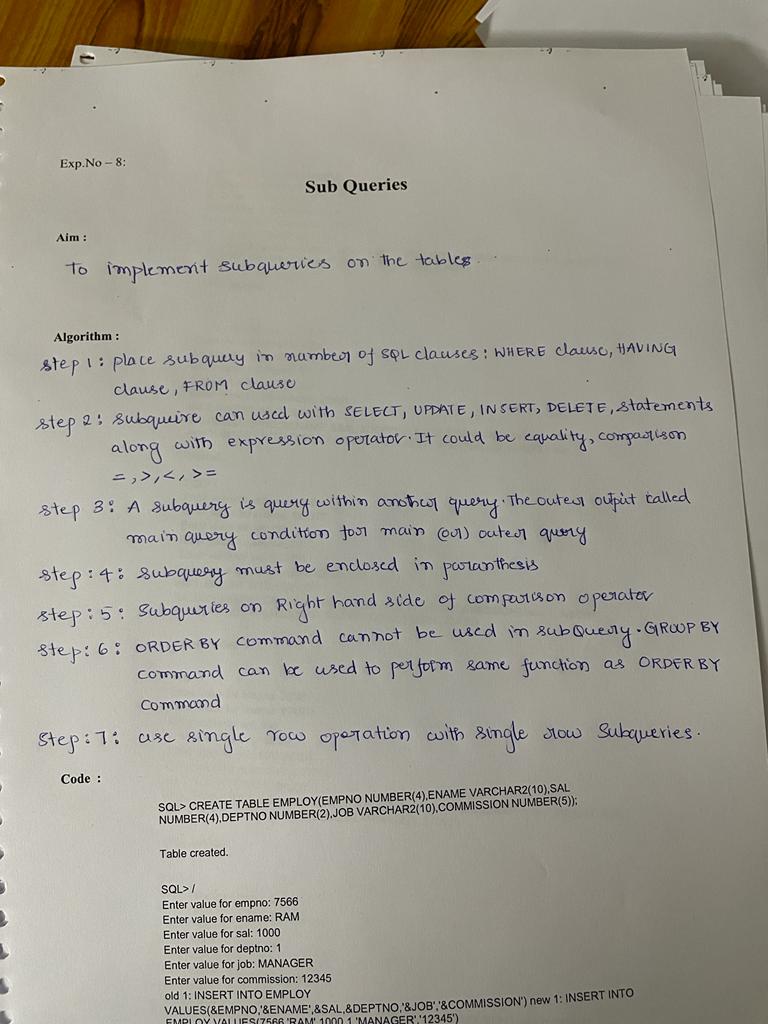 Exp.No – 8:
Sub Queries
Aim :
To implement subqueries on the tables.
Algorithm :
step 1: place subquery in number of SQL clauses: WHERE clause, HAVING
clause, FROM clause
step 2: subqueire can used with SELECT, UPDATE, INSERT, DELETE, statements
along with expression operator. It could be equality, comparison
=, >, <, >=
step 3: A subquery is query within another query. The outer output called
main query condition for main (or) outer query
step: 4: subquery must be enclosed in paranthesis
step: 5: Subqueries on Right hand side of comparison operator
step: 6: ORDER BY command cannot be used in subQuery. GROUP BY
command can be used to perform same function as ORDER BY
command
step: 7: use single row operation with single row Subqueries.
Code :
SQL> CREATE TABLE EMPLOY(EMPNO NUMBER(4),ENAME VARCHAR2(10),SAL
NUMBER(4),DEPTNO NUMBER(2),JOB VARCHAR2(10),COMMISSION NUMBER(5));
Table created.
SQL> /
Enter value for empno: 7566
Enter value for ename: RAM
Enter value for sal: 1000
Enter value for deptno: 1
Enter value for job: MANAGER
Enter value for commission: 12345
old 1: INSERT INTO EMPLOY
VALUES(&EMPNO,'&ENAME',&SAL,&DEPTNO,'&JOB','&COMMISSION') new 1: INSERT INTO
EMPLOY VALUES(7566,'RAM',1000,1,'MANAGER','12345')